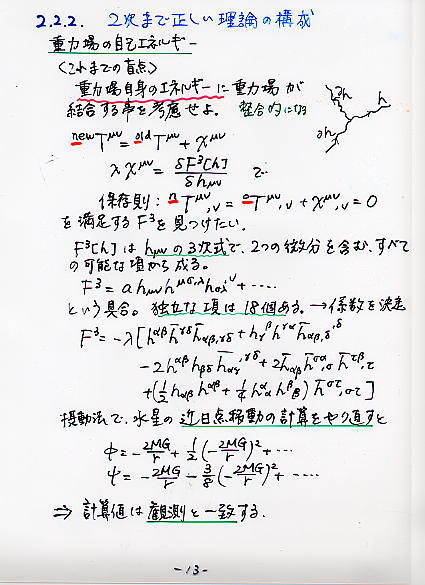 2.2.2. 2次まで正しい理論の構成
重力場の自己エネルギー
(これまでの盲点)
重力場自身のエネルギーに重力場が
結合する事を考慮せよ。 整合的になる
∂h h h
newT^μν = oldT^μν + χ^μν
λχ^μν = δF³[h]/δhμν で
保存則: nT^μν,ν = oT^μν,ν + χ^μν,ν = 0
を満足するF³を見つけたい。
F³[h] は hμν の3次式で、2つの微分を含む、すべて
の可能な項から成る。
F³ = a hμν h^μσ,λ hσλ^,ν + ····
という具合。独立な項は18個ある。→係数を決定
F³ = -λ[h^αβ h̄^γδ h̄αβ,γδ + hγ^β h^γα h̄αβ,δ^,δ
-2h^αβ hβδ h̄αγ^,γδ + 2h̄αβ h̄^σα,σ h̄^τβ,τ
+(½ hαβ h^αβ + ¼ h^α_α h^β_β) h̄^στ,στ]
摂動法で、水星の近日点移動の計算をやり直すと
φ = -2MG/r + ½(-2MG/r)² + ···
ψ = -2MG/r - 3/8(-2MG/r)² + ····
⇒ 計算値は観測と一致する.
-13-